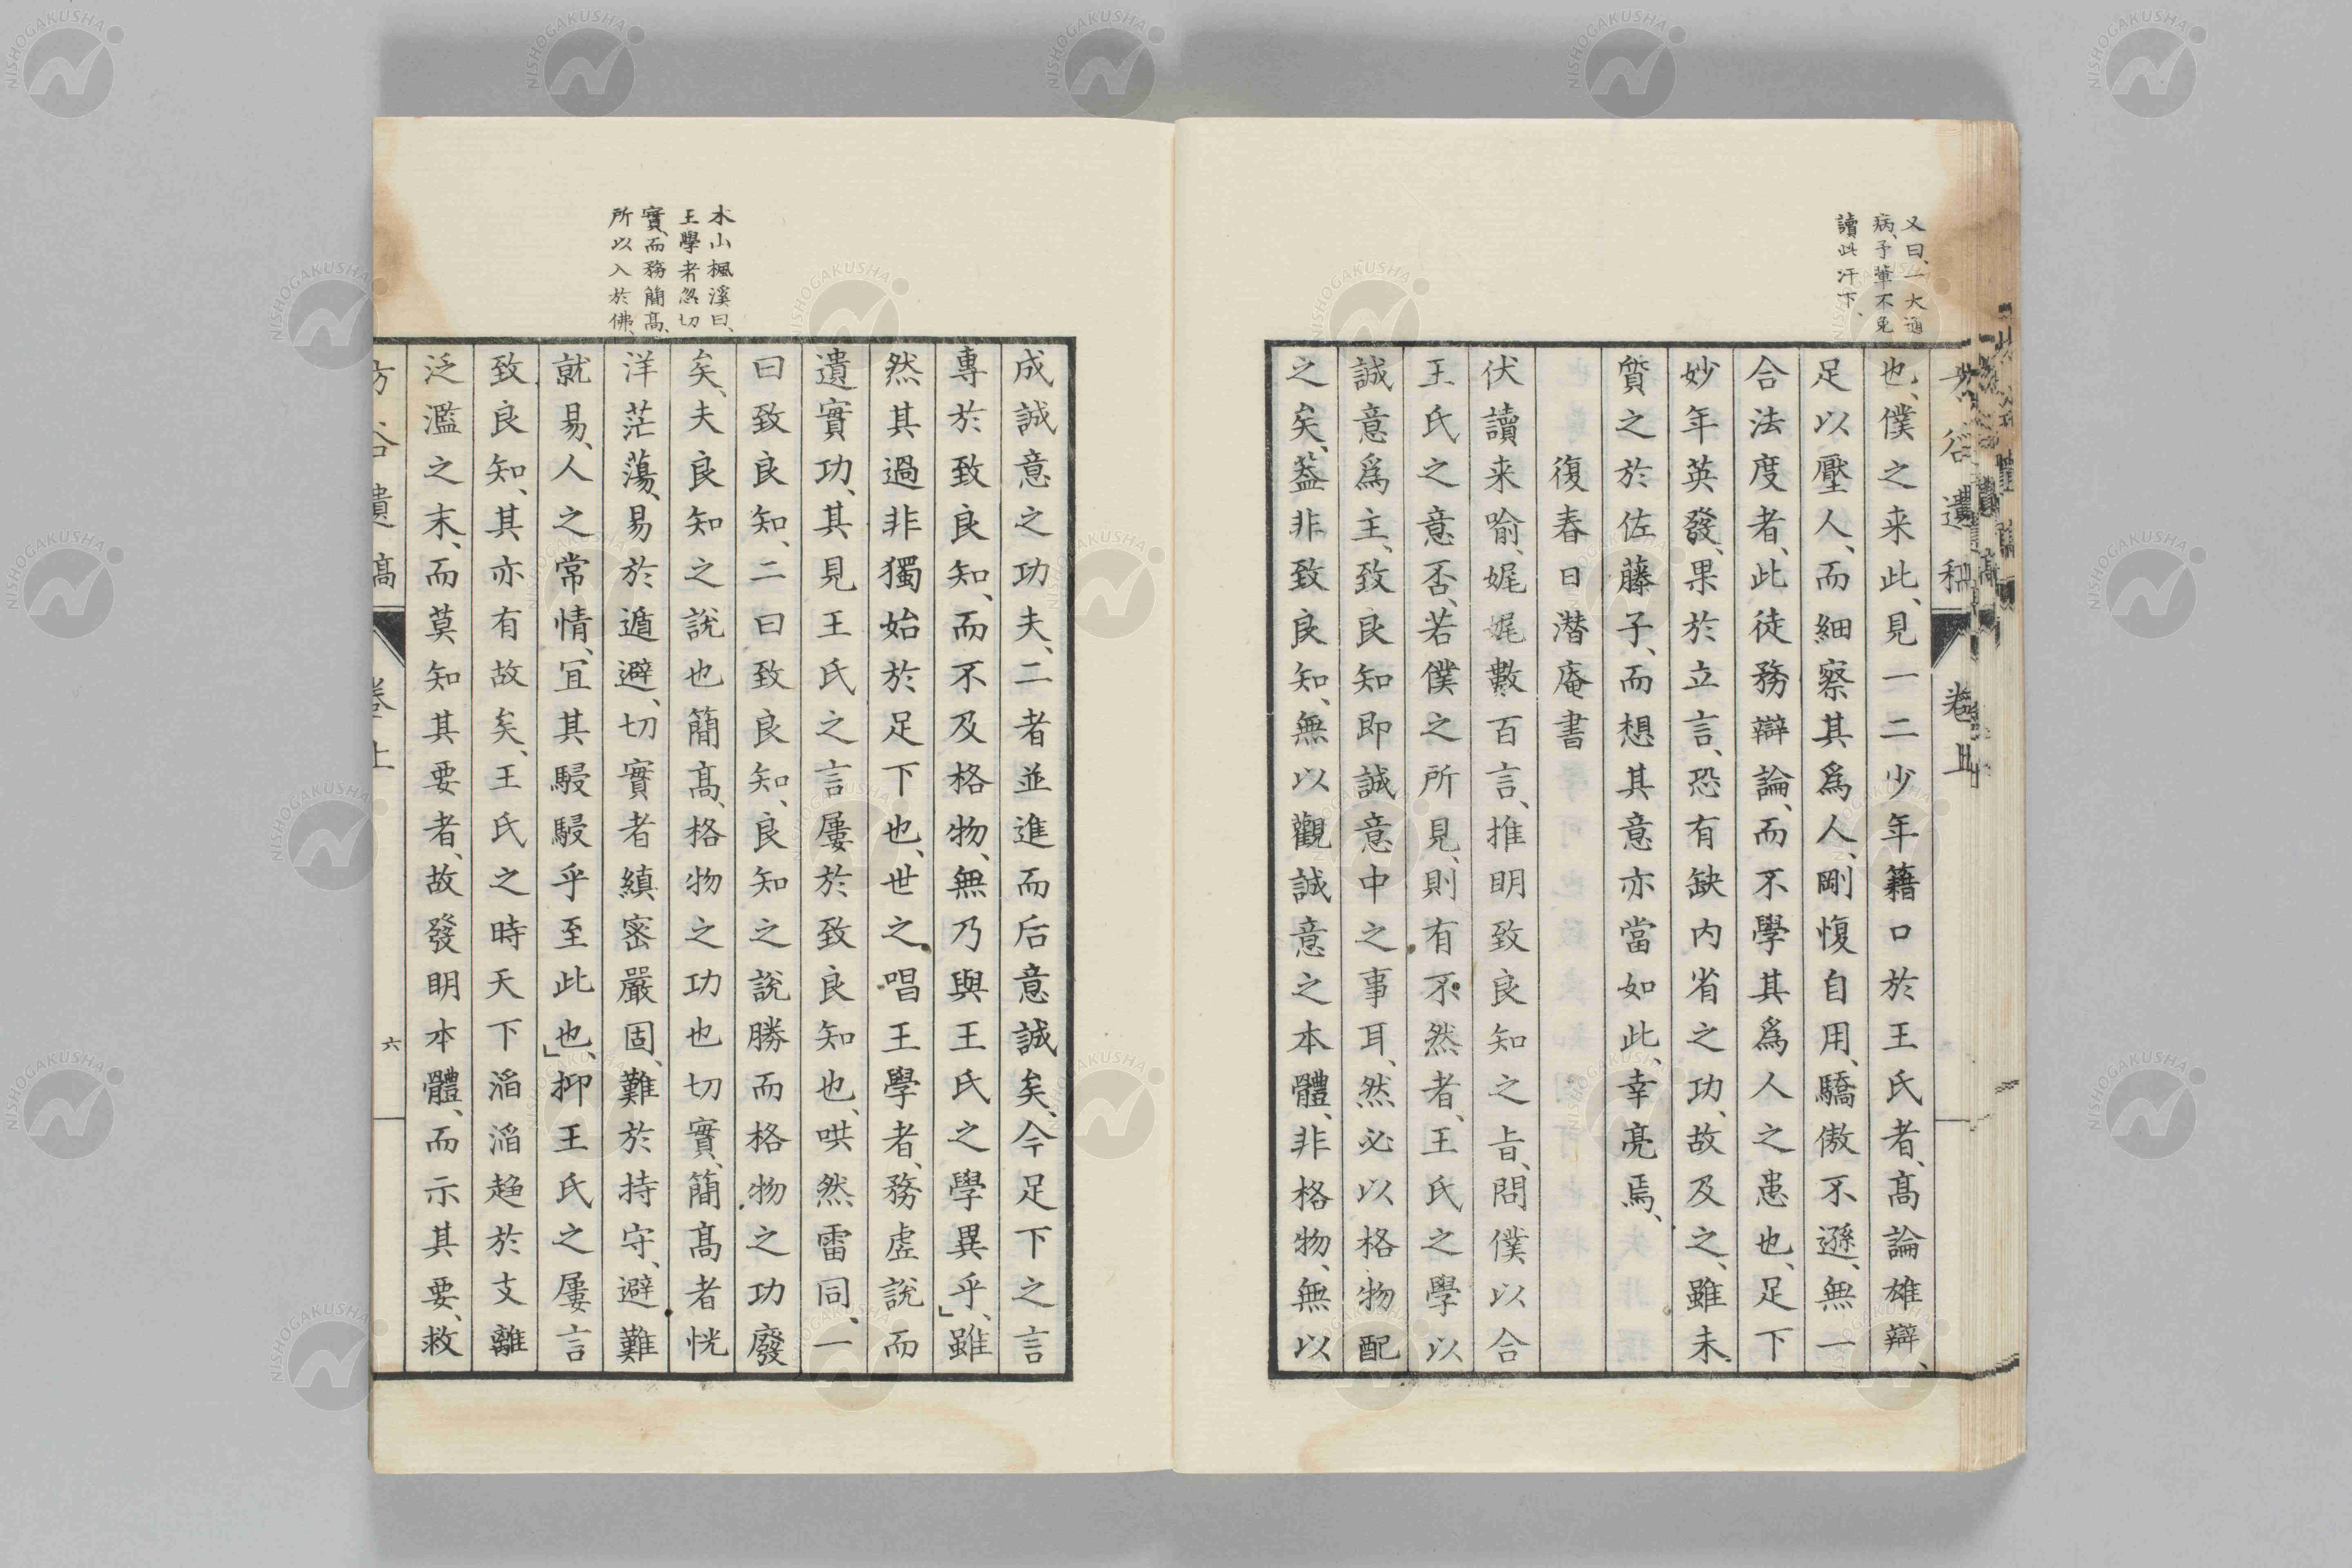 又曰、一大通
病、予輩不免
讀此汗下、
也、僕之来此、見一二少年籍口於王氏者、髙論雄辯、
足以壓人、而細察其爲人、剛愎自用、驕傲不遜、無一
合法度者、此徒務辯論、而不學其爲人之患也、足下
妙年英發、果於立言、恐有缺内省之功、故及之、雖未
質之於佐藤子、而想其意亦當如此、幸亮焉、
復春日潜庵書
伏讀来喻、娓娓數百言、推明致良知之旨、問僕以合
王氏之意否、若僕之所見、則有不然者、王氏之學以
誠意爲主、致良知即誠意中之事耳、然必以格物配
之矣、葢非致良知、無以觀誠意之本體、非格物、無以
木山楓溪曰、
王學者忽切
實、而務簡髙、
所以入於佛、
成誠意之功夫、二者並進而后意誠矣、今足下之言
專於致良知、而不及格物、無乃與王氏之學異乎、」雖
然其過非獨始於足下也、世之唱王學者、務虗說而
遺實功、其見王氏之言屢於致良知也、哄然雷同、一
曰致良知、二曰致良知、良知之說勝而格物之功廢
矣、夫良知之說也簡髙、格物之功也切實、簡髙者恍
洋茫蕩、易於遁避、切實者縝密嚴固、難於持守、避難
就易、人之常情、冝其駸駸乎至此也、」抑王氏之屢言
致良知、其亦有故矣、王氏之時天下滔滔趋於支離
泛濫之末、而莫知其要者、故發明本體、而示其要、救
方谷遺稿 卷上 六